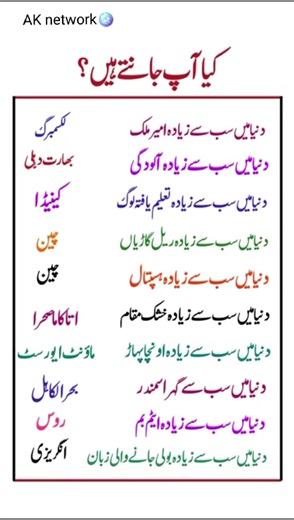 AK network
کیا آپ جانتے ہیں؟
دنیا میں سب سے زیادہ امیر ملک لکسمبرگ
دنیا میں سب سے زیادہ آلودگی بھارت دہلی
دنیا میں سب سے زیادہ تعلیم یافتہ لوگ کینیڈا
دنیا میں سب سے زیادہ ریل گاڑیاں چین
دنیا میں سب سے زیادہ ہسپتال چین
دنیا میں سب سے زیادہ خشک مقام اتاکاما صحرا
دنیا میں سب سے زیادہ اونچا پہاڑ ماؤنٹ ایورسٹ
دنیا میں سب سے گہرا سمندر بحر الکاہل
دنیا میں سب سے زیادہ ایٹم بم روس
دنیا میں سب سے زیادہ بولی جانے والی زبان انگریزی